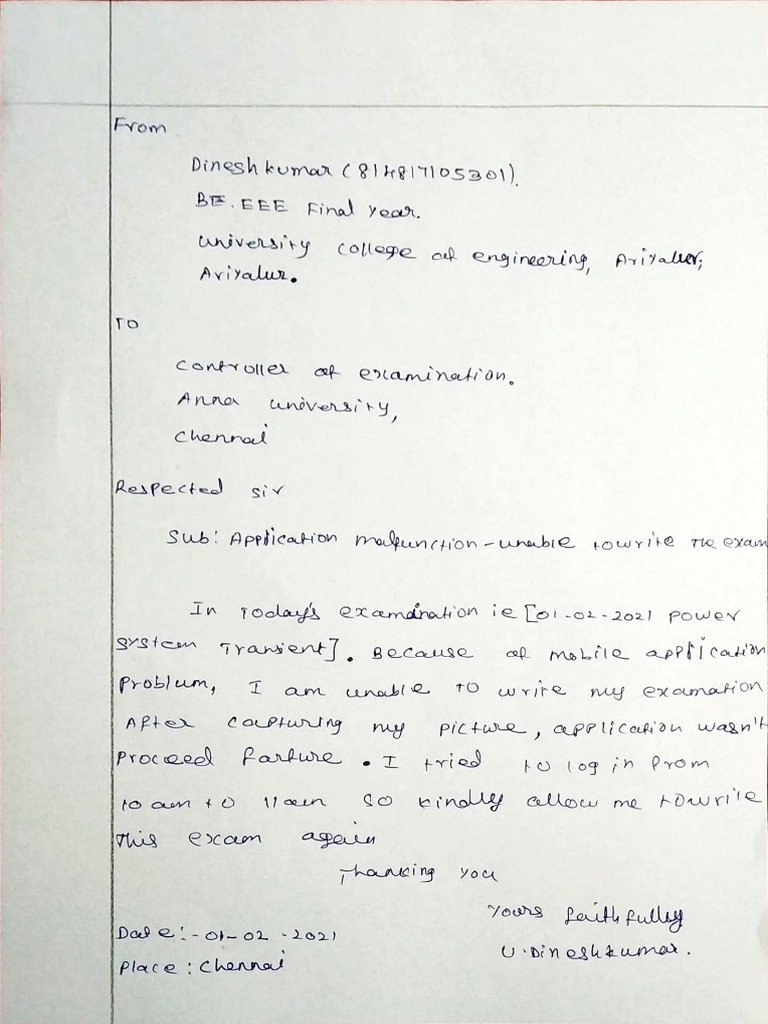 From
Dineshkumar (814817105301).
BE. EEE Final Year.
University College of engineering, Ariyalur,
Ariyalur.
To
Controller of examination.
Anna University,
Chennai
Respected sir
Sub: Application malfunction - unable to write the exam
In Today's examination ie [01-02-2021 power
system Transient]. Because of mobile application
Problum, I am unable to write my examation
After capturing my picture, application wasn't
proceed farture. I tried to log in from
10 am to 11 am so kindly allow me to write
this exam again
Thanking you
Yours faithfully
Date:- 01-02-2021
U. Dineshkumar.
Place: Chennai